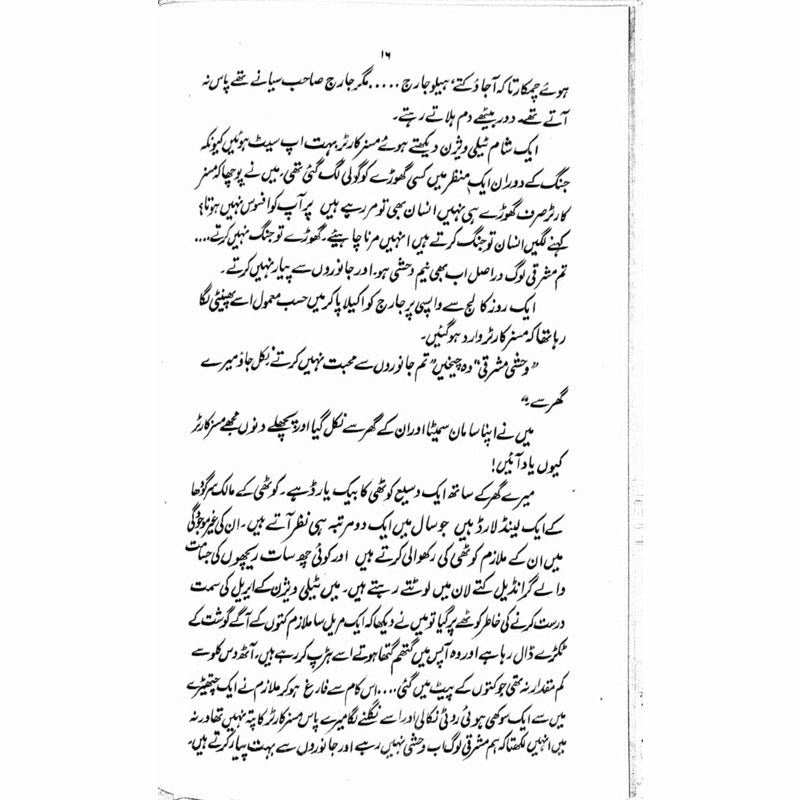 ۱۶
ہوئے چمکارتا کہ آ جاؤ کتے، ہیلو جارج ..... مگر جارج صاحب سیانے تھے پاس نہ
آتے تھے۔ دور بیٹھے دم ہلاتے رہتے۔
ایک شام ٹیلی ویژن دیکھتے ہوئے مسز کارٹر بہت اپ سیٹ ہوئیں کیونکہ
جنگ کے دوران ایک منظر میں کسی گھوڑے کو گولی لگ گئی تھی۔ میں نے پوچھا کہ مسز
کارٹر صرف گھوڑے ہی نہیں انسان بھی تو مر رہے ہیں پر آپ کو افسوس نہیں ہوتا؟
کہنے لگیں انسان تو جنگ کرتے ہیں انہیں مرنا چاہیئے۔ گھوڑے تو جنگ نہیں کرتے....
تم مشرقی لوگ دراصل اب بھی نیم وحشی ہو۔ اور جانوروں سے پیار نہیں کرتے۔
ایک روز کالج سے واپسی پر جارج کو اکیلا پا کر میں حسب معمول اسے پھینٹی لگا
رہا تھا کہ مسز کارٹر وارد ہو گئیں۔
"وحشی مشرقی" وہ چیخیں "تم جانوروں سے محبت نہیں کرتے نکل جاؤ میرے
گھر سے۔"
میں نے اپنا سامان سمیٹا اور ان کے گھر سے نکل گیا اور پچھلے دنوں مجھے مسز کارٹر
کیوں یاد آئیں!
میرے گھر کے ساتھ ایک وسیع کوٹھی کا بیک یارڈ ہے۔ کوٹھی کے مالک سرگودھا
کے ایک لینڈ لارڈ ہیں جو سال میں ایک دو مرتبہ ہی نظر آتے ہیں۔ ان کی غیر موجودگی
میں ان کے ملازم کوٹھی کی رکھوالی کرتے ہیں اور کوئی چھ سات ریچھوں کی جسامت
والے گرانڈیل کتے لان میں لوٹتے رہتے ہیں۔ میں ٹیلی ویژن کے ایریل کی سمت
درست کرنے کی خاطر کوٹھے پر گیا تو میں نے دیکھا کہ ایک مریل سا ملازم کتوں کے آگے گوشت کے
ٹکڑے ڈال رہا ہے اور وہ آپس میں گتھم گتھا ہوتے اسے ہڑپ کر رہے ہیں۔ آٹھ دس کلو سے
کم مقدار نہ تھی جو کتوں کے پیٹ میں گئی.... اس کام سے فارغ ہو کر ملازم نے ایک چیتھڑے
میں سے ایک سوکھی ہوئی روٹی نکالی اور اسے نگلنے لگا میرے پاس مسز کارٹر کا پتہ نہیں تھا ورنہ
میں انہیں لکھتا کہ ہم مشرقی لوگ اب وحشی نہیں رہے اور جانوروں سے بہت پیار کرتے ہیں۔